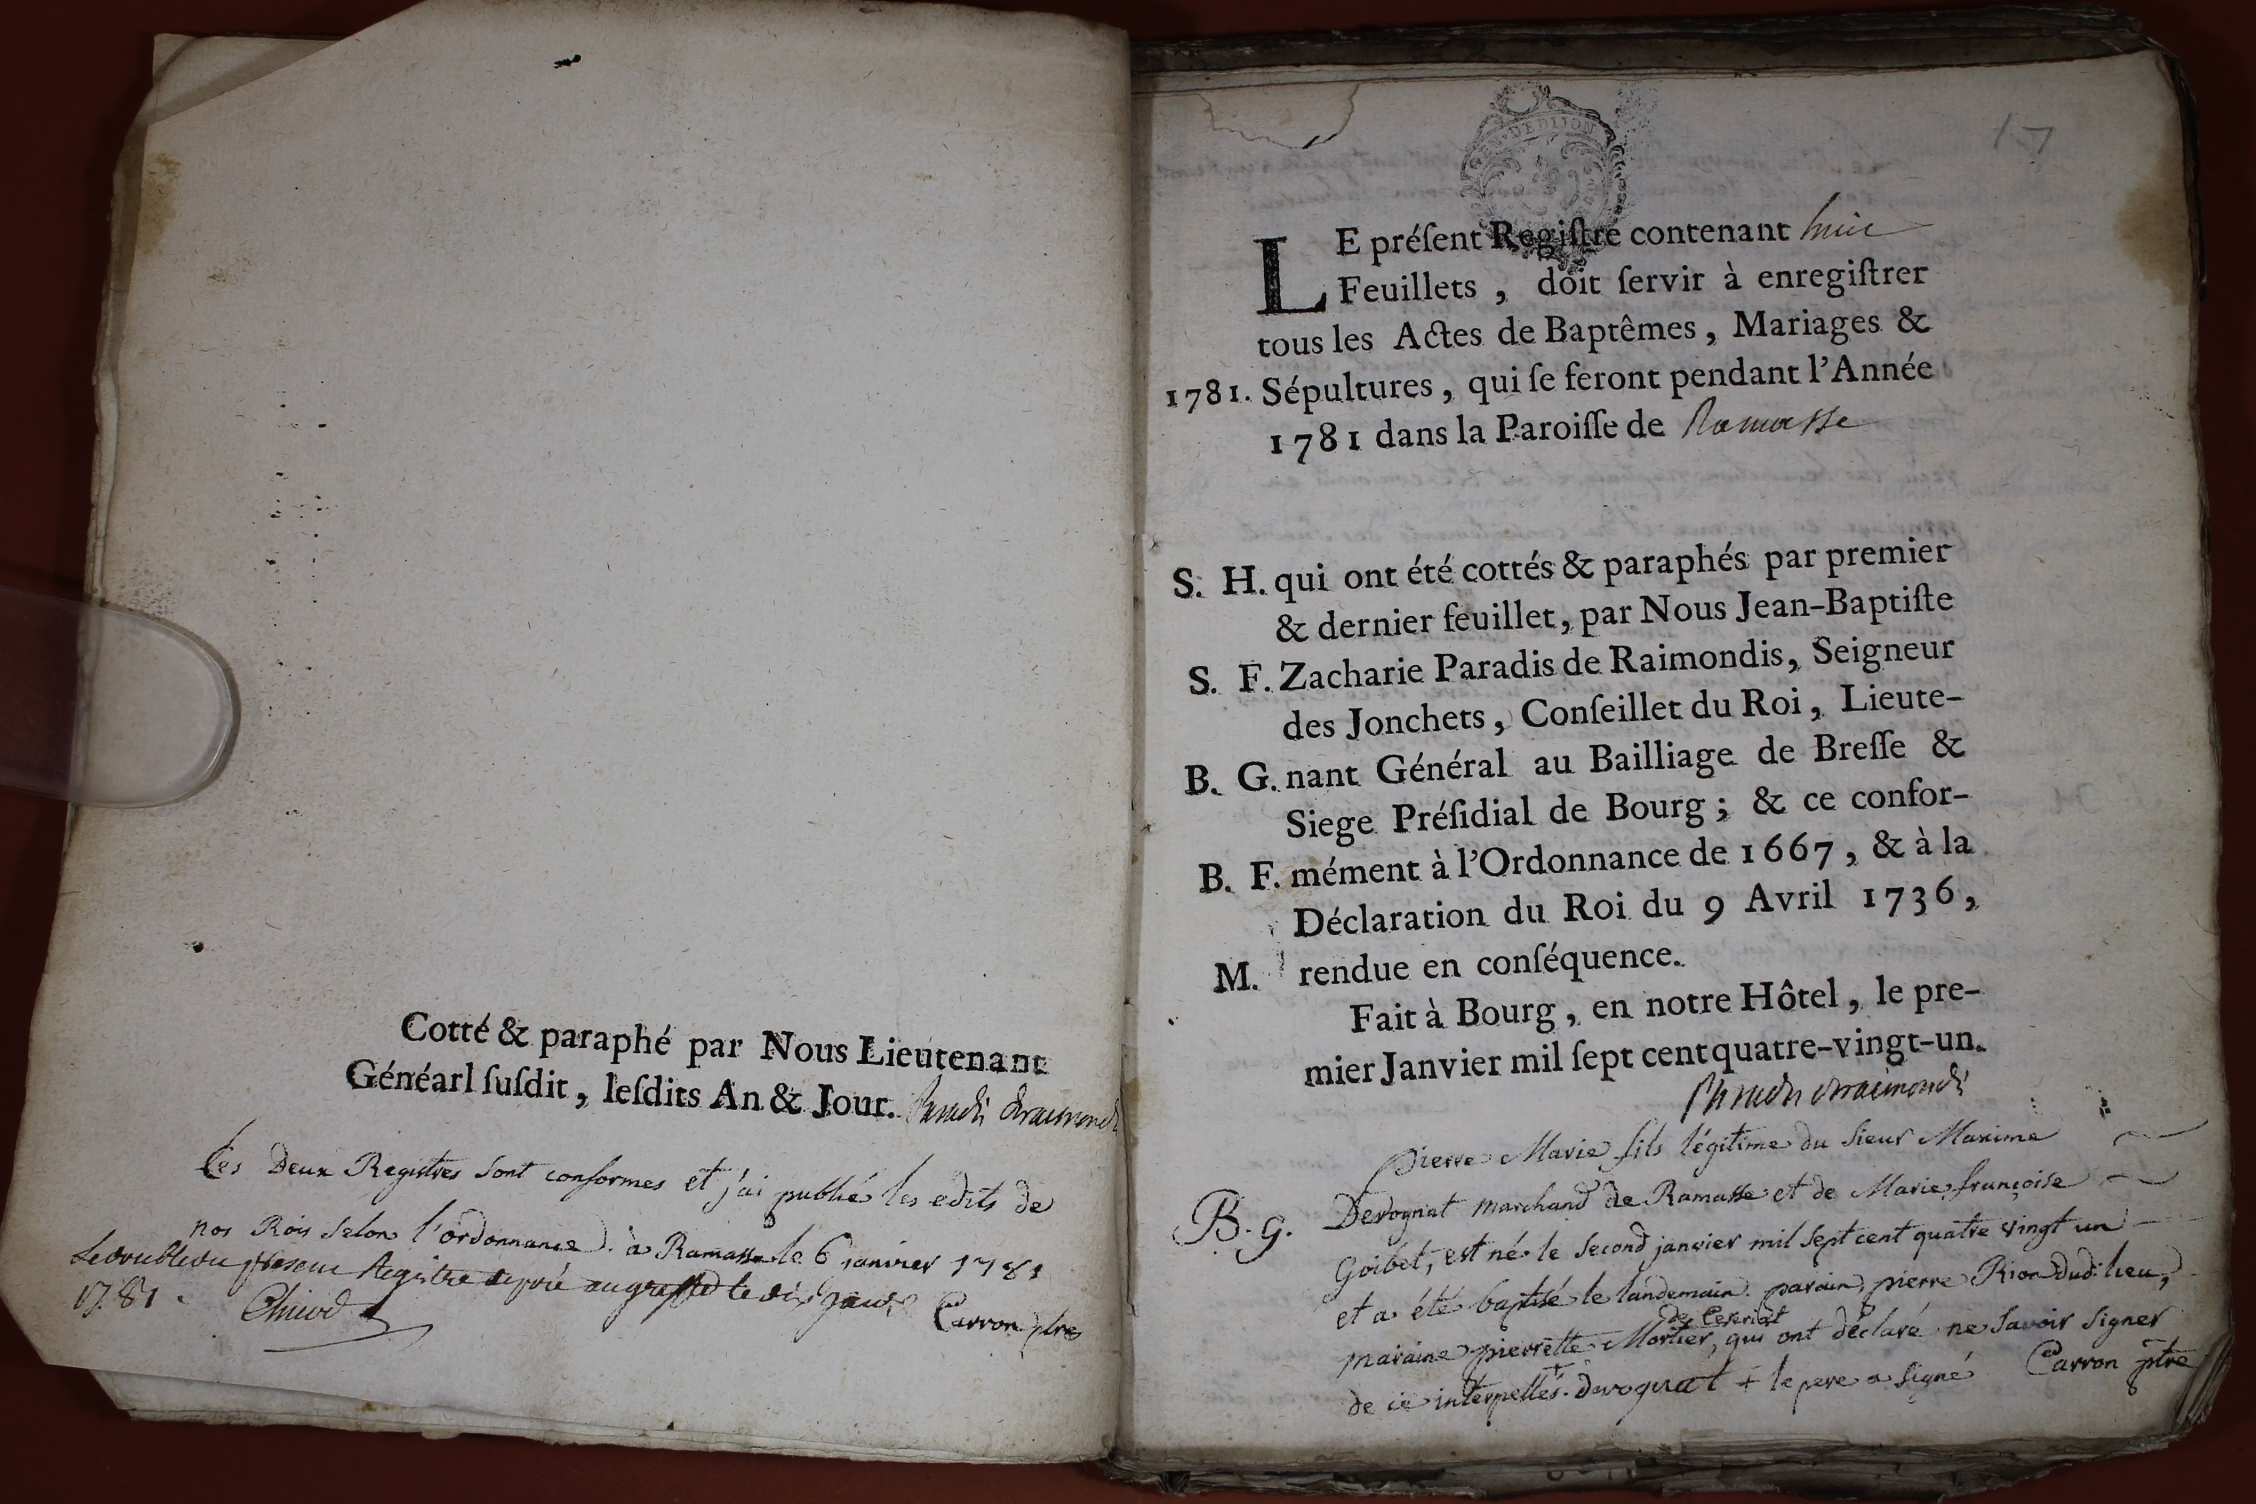 Cotté & paraphé par Nous Lieutenant
Généarl ſuſdit, leſdits An & Jour.
Ces Deux Registres sont conformes et j'ai publié les edits de
nos Rois selon l'ordonnance. à Ramasse le 6 janvier 1781
Carron ptre
Le double du present Registre deposé au greffe le dix janv
1781.
Chicod
DEDIJON
17
LE préſent Regiſtre contenant huit
Feuillets, doit ſervir à enregiſtrer
tous les Actes de Baptêmes, Mariages &
1781. Sépultures, qui ſe feront pendant l'Année
1781 dans la Paroiſſe de Ramasse
S. H. qui ont été cottés & paraphés par premier
& dernier feuillet, par Nous Jean-Baptiſte
S. F. Zacharie Paradis de Raimondis, Seigneur
des Jonchets, Conſeillet du Roi, Lieute-
B. G. nant Général au Bailliage de Breſſe &
Siege Préſidial de Bourg; & ce confor-
B. F. mément à l'Ordonnance de 1667, & à la
Déclaration du Roi du 9 Avril 1736,
M. rendue en conſéquence.
Fait à Bourg, en notre Hôtel, le pre-
mier Janvier mil ſept cent quatre-vingt-un.
Paradis deraimondis
Pierre Marie fils légitime du sieur Maxime
B. g. Devognat marchand de Ramasse et de Marie françoise
Goibet, est né le second janvier mil sept cent quatre vingt un
et a été baptisé le landemain. parain pierre Rion dud. lieu,
de Ceseriat
maraine pierrette Mortier, qui ont déclaré ne savoir signer
de ce interpellés. + devognat + le pere a signé Carron ptre